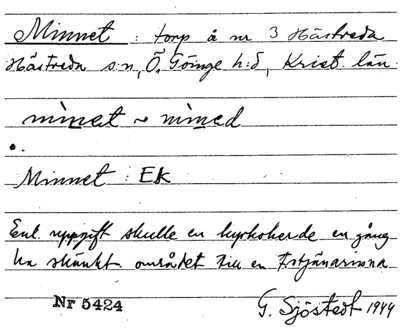 Minnet : torp å nr 3 Hästveda
Hästveda s:n, Ö. Göinge h:d, Krist. län.
minnet ~ minned
Minnet : Ek
Enl. uppgift skulle en kyrkoherde en gång
ha skänkt området till en tjänarinna
Nr 5424 G. Sjöstedt 1944